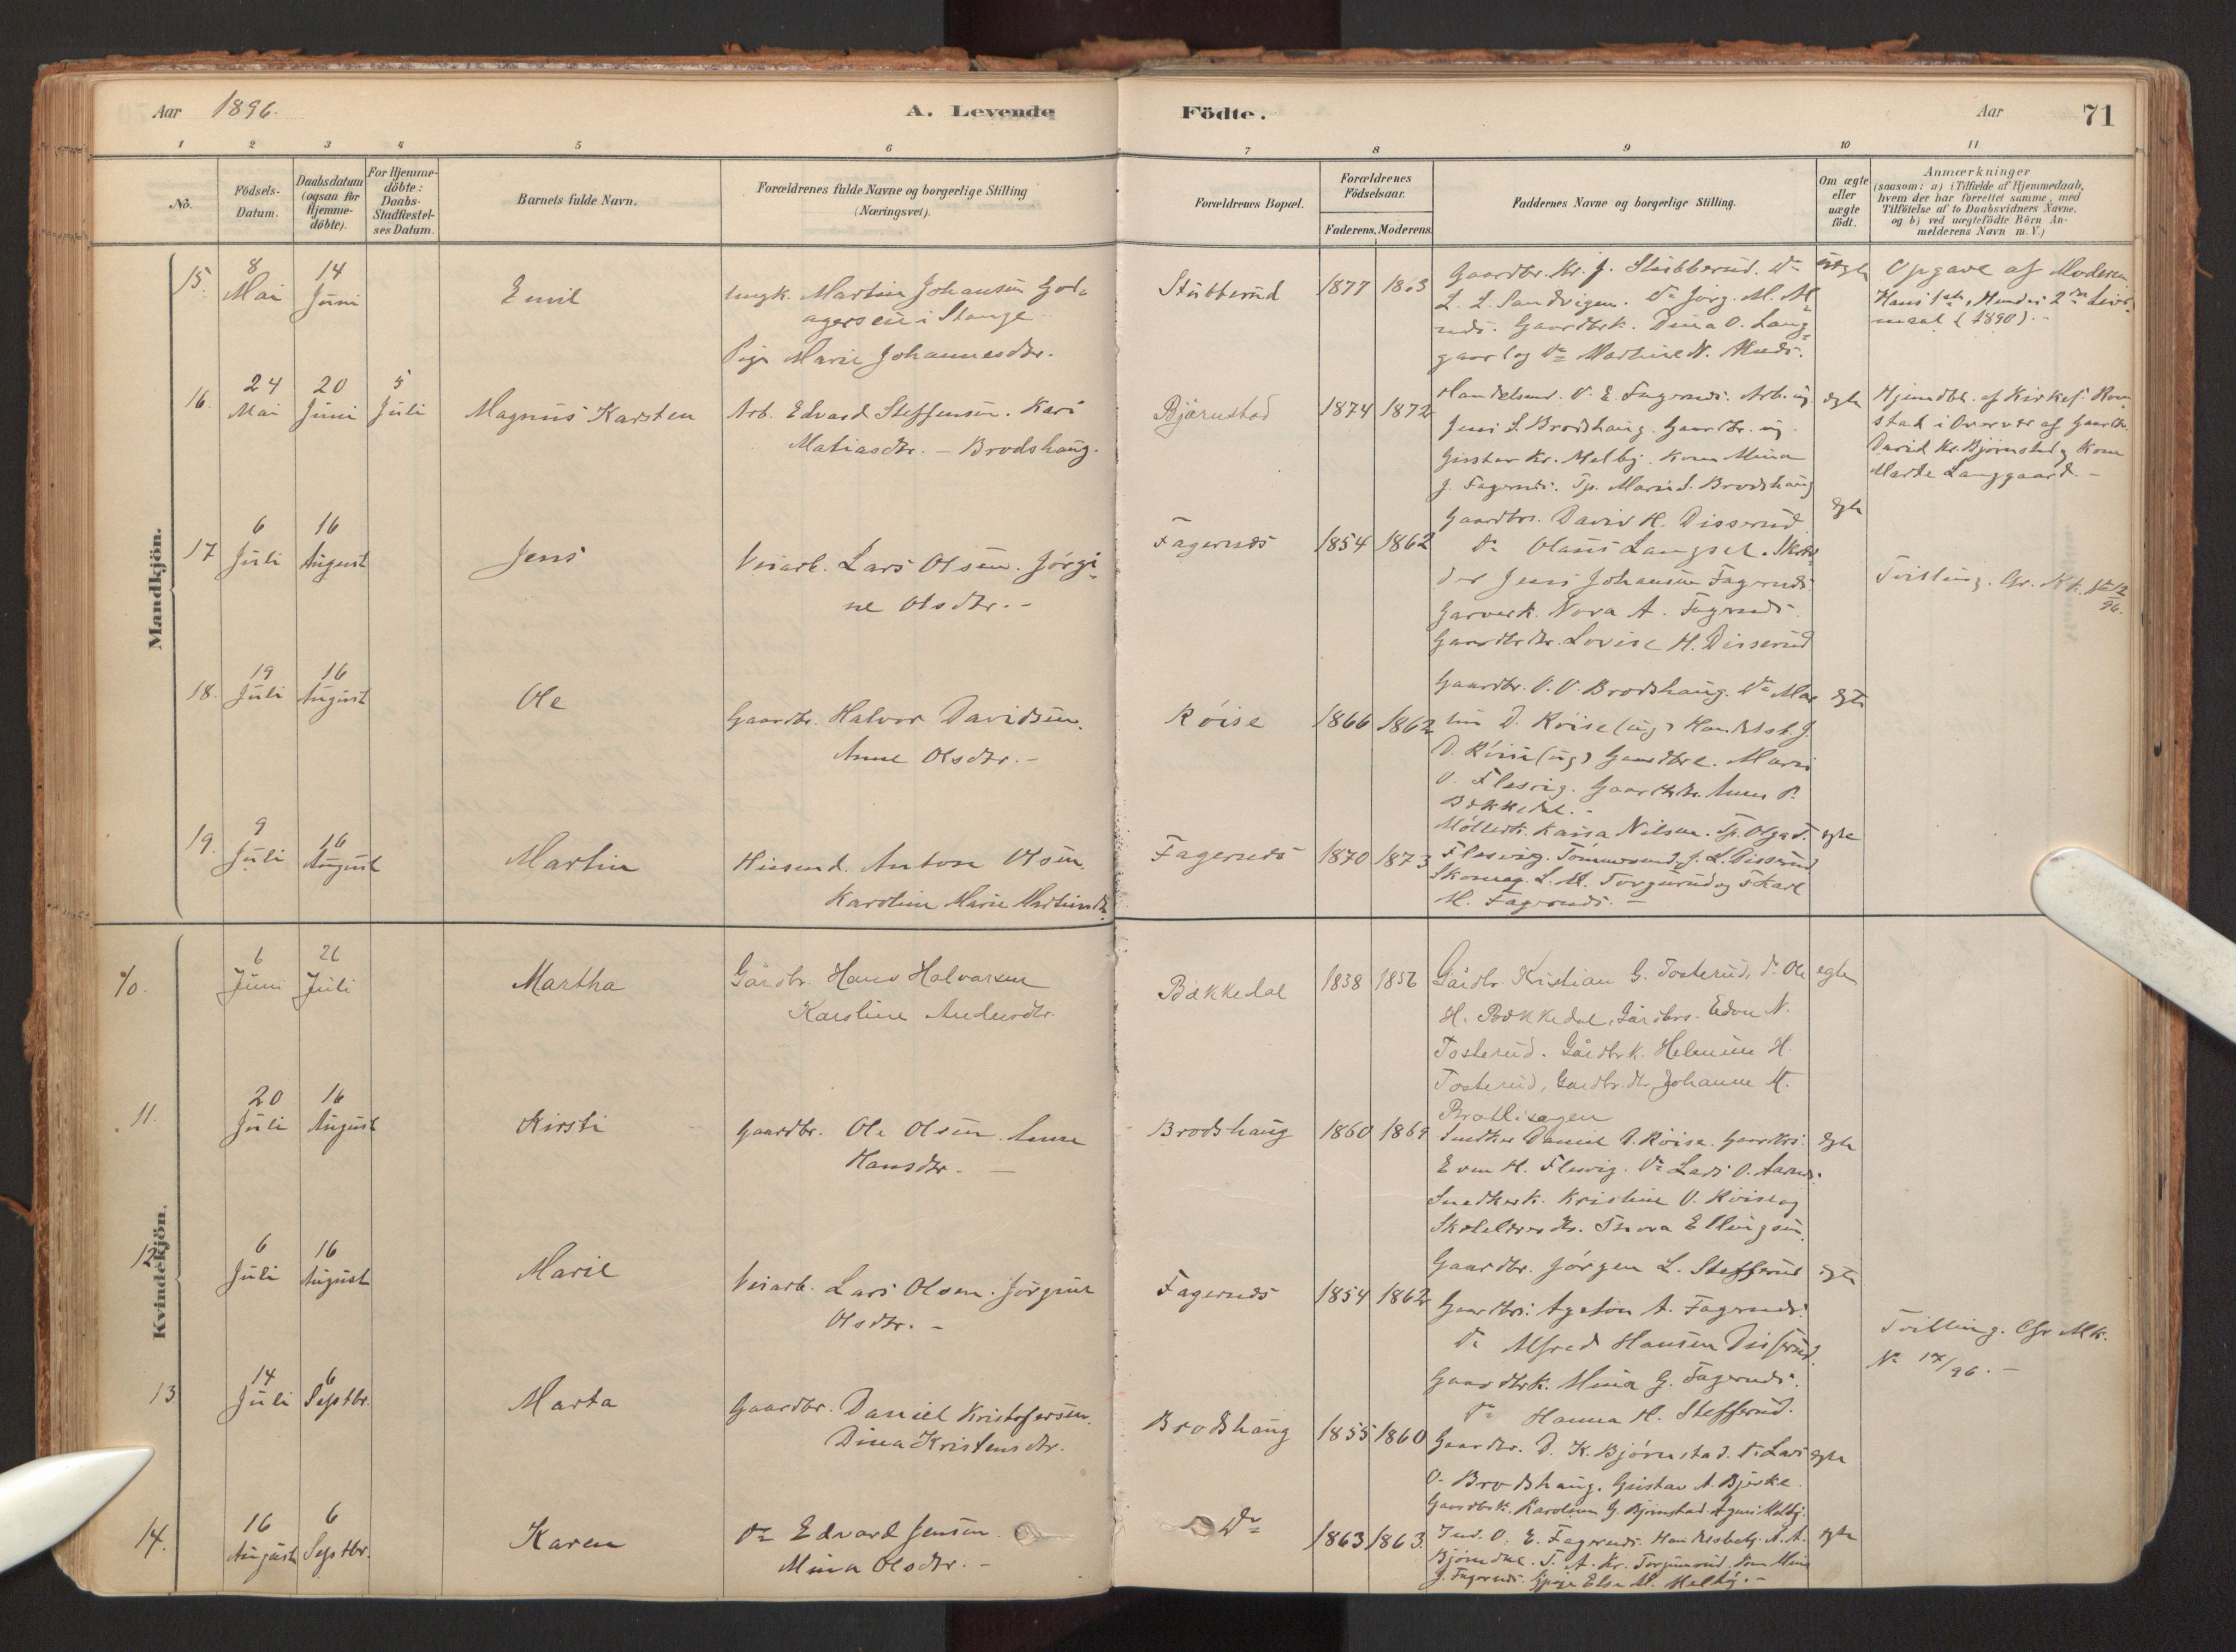 Aar 1896.
A. Levende
Födte.
Aar
71
1 2 3 4 5 6 7 8 9 10 11
No.
Födsels-
Datum.
Daabsdatum
(ogsaa for
Hjemme-
döbte).
For Hjemme-
döbte:
Daabs-
Stadfæstel-
ses Datum.
Barnets fulde Navn.
Forældrenes fulde Navne og borgerlige Stilling
(Næringsvei).
Forældrenes Bopæl.
Forældrenes
Födselsaar.
Faderens. Moderens.
Faddernes Navne og borgerlige Stilling.
Om ægte
eller
uægte
födt.
Anmærkninger
(saasom: a) i Tilfælde af Hjemmedaab,
hvem der har forrettet samme, med
Tilföielse af to Daabsvidners Navne.
og b) ved uægtefödte Börn An-
melderens Navn m. V.)
Mandkjön.
15. 8 Mai 14 Juni
Emil
Ungk. Martin Johansen
i Stange
Pige Marie Johannesdtr.
Stubberud 1877 1863
Gaardbr. Kr. J. Stubberud. Do
L. L. Sandvigen. Do Jörg. M.
Gaardbrk. Dina O. Lang-
gaard og Do Martine N.
uægte
Opgave af Moderen
Hans 1ste, Hendes 2det Leier-
maal (1890). -
16. 24 Mai 20 Juni 5 Juli
Magnus Karsten
Arb. Edvard Steffensen. Kari
Matiasdtr. - Brodshaug.
Bjørnstad 1874 1872
Handelsmd. O. E. Fagernæs. Arb. ug.
Jens S. Brodshaug. Gaardbr. ug.
Gustav Kr. Melby. Kone Mina
J. Fagernæs. Tp. Marie S. Brodshaug
ægte
Hjemdbt. af Kirkes.
stad i Overvær af Gaardbr.
David Kr. Bjørnstad og Kone
Marte Langgaard. -
17 6 Juli 16 August
Jens
Veiarb. Lars Olsen. Jørgi-
ne Olsdtr. -
Fagernæs 1854 1862
Gaardbrs. David H. Disserud
Do Olaus Langset.
Jens Johansen Fagernæs.
Garverk. Nora A. Fagernæs.
Gaardbrdtr. Lovise H. Disserud
ægte
Tvilling. Cfr. Kk. No 12/96.
18. 19 Juli 16 August
Ole
Gaardbr. Halvor Davidsen.
Anne Olsdtr. -
Røise 1866 1862
Gaardbr. O. O. Brodshaug. Do Mar-
tin D. Røise (ug) Handelsb. J.
D. Røise (ug) Gaardbrk. Maria
O. Flesvig. Gaardbrdtr. Anne P.
Bækkedal. -
ægte
19. 9 Juli 16 August
Martin
Huusmd. Anton Olsen.
Karoline Marie Martinsdtr.
Fagernæs 1870 1873
Møllerk. Kaisa Nilsen. Tp. Olga T.
Flesvig. Tømmermd. J. L. Disserud
Skomag. L. M. Torgunrud og Karl
M. Fagernæs. -
ægte
Kvindekjön.
10. 6 Juni 26 Juli
Martha
Gårdbr. Hans Halvorsen
Karoline Andersdtr.
Bækkedal 1838 1856
Gårdbr. Kristian G. Tosterud, Do Ole
H. Bækkedal, Gårdbrs. Edvn N.
Tosterud. Gårdbrk. Helmine H.
Tosterud, Gårdbr.dtr Johanne M.
Brollisagen
egte
11. 20 Juli 16 August
Kirsti
Gaardbr. Ole Olsen. Anne
Hansdtr. -
Brodshaug 1860 1869
Snedker Daniel D. Røise. Gaardbrs.
Even H. Flesvig. Do Lars O. Aarnæs.
Snedkerk. Kristine O. Røise og
Skolelærerdtr. Thora Ellingsen.
ægte
12. 6 Juli 16 August
Marie
Veiarb. Lars Olsen. Jørgine
Olsdtr. -
Fagernæs 1854 1862
Gaardbr. Jørgen L. Stefferud
Gaardbrs. Agaton A. Fagernæs.
Do Alfred Hansen Disserud.
Gaardbrk. Mina G. Fagernæs.
Do Hanna H. Stefferud.
ægte
Tvilling. Cfr Mk.
No 17/96. -
13 14 Juli 6 Septbr.
Marta
Gaardbr. Daniel Kristofersen.
Dina Kristensdtr.
Brodshaug 1855 1860
Gaardbr. D. K. Bjørnstad. Do Lars
O. Brodshaug. Gustav A. Bjerke.
Gaardbrk. Karoline G. Bjørnstad. Agnes Melby.
ægte
14. 16 August 6 Septbr.
Karen
Do Edvard Jensen.
Mina Olsdtr. -
Do 1863 1863
O. E. Fagernæs. Handelsbetj. A. A.
Bjørndal. T. A. Kr. Torgunrud. Kone Mina
J. Fagernæs. Pige Else M. Melby. -
ægte